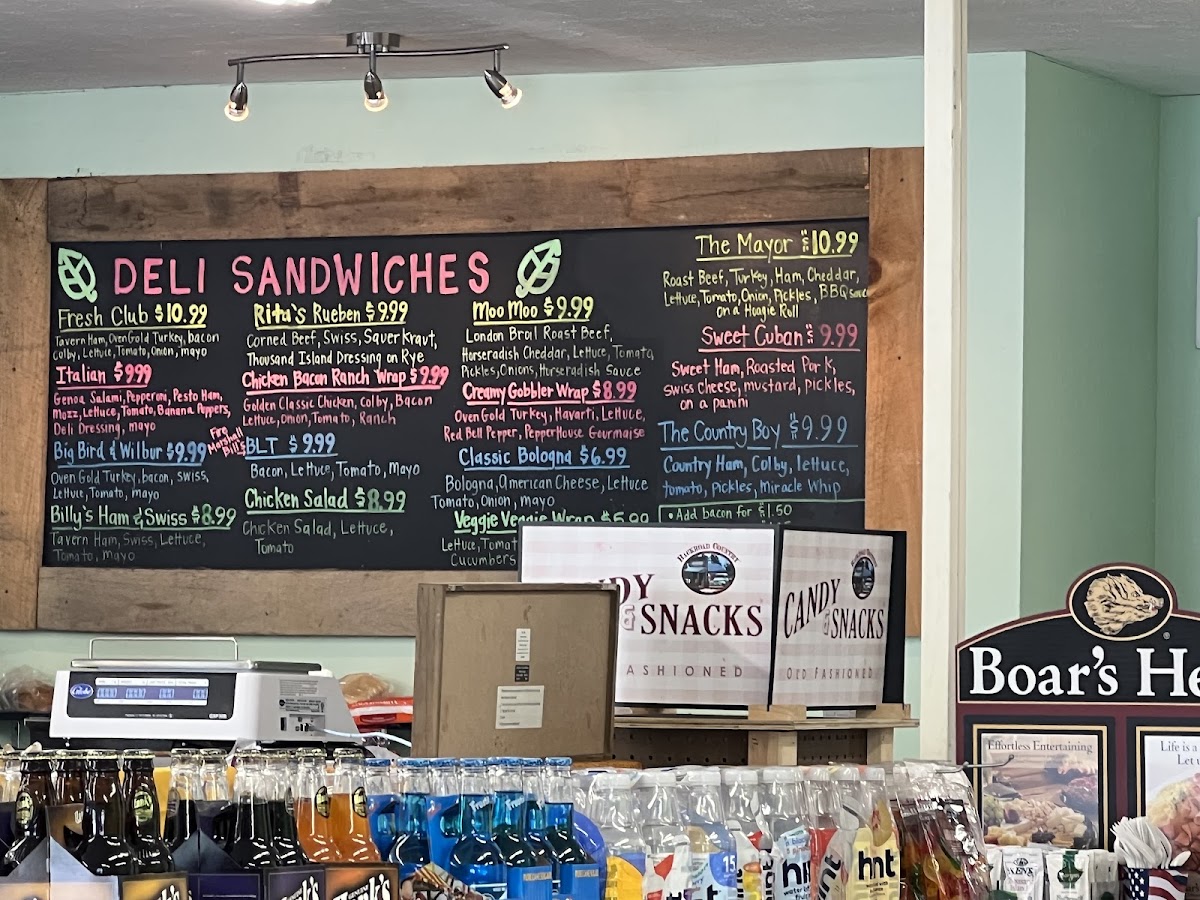 DELI SANDWICHES
Fresh Club $10.99
Tavern Ham, Oven Gold Turkey, bacon
Colby, Lettuce, Tomato, Onion, mayo
Italian $9.99
Genoa Salami, Pepperoni, Pesto Ham,
Mozz, Lettuce, Tomato, Banana Peppers,
Deli Dressing, mayo
Big Bird & Wilbur $9.99
Oven Gold Turkey, bacon, swiss,
Lettuce, Tomato, mayo
Billy's Ham & Swiss $8.99
Tavern Ham, Swiss, Lettuce,
Tomato, mayo
Rita's Rueben $9.99
Corned Beef, Swiss, Sauerkraut,
Thousand Island Dressing on Rye
Chicken Bacon Ranch Wrap $9.99
Golden Classic Chicken, Colby, Bacon
Lettuce, Onion, Tomato, Ranch
Fire
Marshall
Bill's
BLT $9.99
Bacon, Lettuce, Tomato, Mayo
Chicken Salad $8.99
Chicken Salad, Lettuce,
Tomato
Moo Moo $9.99
London Broil Roast Beef,
Horseradish Cheddar, Lettuce, Tomato,
Pickles, Onions, Horseradish Sauce
Creamy Gobbler Wrap $8.99
Oven Gold Turkey, Havarti, Lettuce,
Red Bell Pepper, Pepperhouse Gourmaise
Classic Bologna $6.99
Bologna, American Cheese, Lettuce
Tomato, Onion, mayo
Veggie Veggie Wrap $5.99
Lettuce, Tomat
Cucumbers
The Mayor $10.99
Roast Beef, Turkey, Ham, Cheddar,
Lettuce, Tomato, Onion, Pickles, BBQ sauce
on a Hoagie Roll
Sweet Cuban $9.99
Sweet Ham, Roasted Pork,
swiss cheese, mustard, pickles,
on a panini
The Country Boy $9.99
Country Ham, Colby, lettuce,
tomato, pickles, Miracle Whip
• Add bacon for $1.50
BACKROAD COUNTRY
NDY
& SNACKS
ASHIONED
CANDY
& SNACKS
OLD FASHIONED
Boar's He
Effortless Entertaining
Life is a
Let u
15
hint
hint